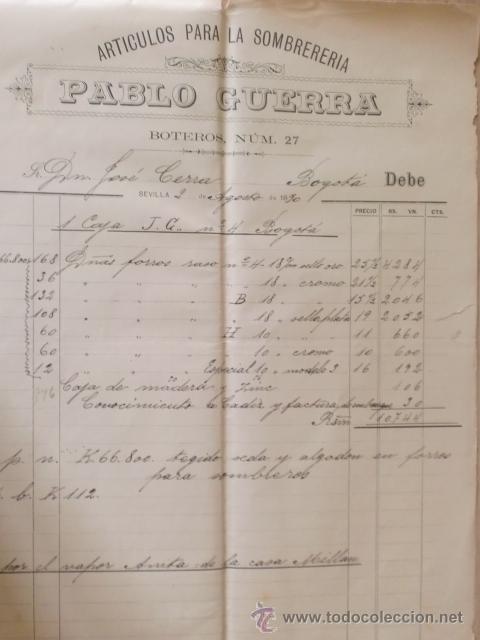 ARTICULOS PARA LA SOMBRERERIA
PABLO GUERRA
BOTEROS, NÚM. 27
Sr. Dn. José Cerra Bogotá Debe
SEVILLA 2 de Agosto de 1890
PRECIO RS. VN. CTS.
1 Caja J. G. nº 4 Bogotá
66.800 168 Dnas forros raso nº 4-18 sello oro 25½ 4284
36 " " " " 18 " cromo 21½ 774
132 " " " B 18 " " 15½ 2046
108 " " " " 18 " sello plata 19 2052
60 " " " H 10 " " 11 660
60 " " " " 10 " cromo 10 600
12 " " Especial 10 " modelo 3 16 192
Caja de madera y zinc 106
Conocimiento a Cadiz y factura 30
Rsvn 10744
p. n. K. 66.800. tegido seda y algodon en forros
para sombreros
p. b. K 112.
por el vapor Anita de la casa Millan
www.todocoleccion.net